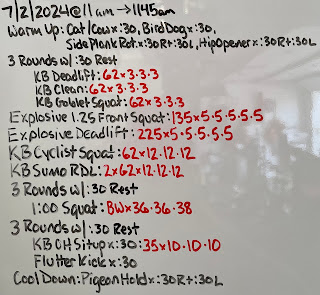 7/2/2024@11am→1145am
Warm Up: Cat/Cow x :30, Bird Dog x :30,
Side Plank Rot. x :30R+:30L, Hip Opener x :30R+:30L
3 Rounds w/ :30 Rest
KB Deadlift: 62x3.3.3
KB Clean: 62x3.3.3
KB Goblet Squat: 62x3.3.3
Explosive 1.25 Front Squat: 135x5.5.5.5.5
Explosive Deadlift: 225x5.5.5.5.5
KB Cyclist Squat: 62x12.12.12
KB Sumo RDL: 2x62x12.12.12
3 Rounds w/ :30 Rest
1:00 Squat: BWx36.36.38
3 Rounds w/ :30 Rest
KB OH Situp x :30: 35x10.10.10
Flutter Kick x :30
Cool Down: Pigeon Hold x :30R+:30L